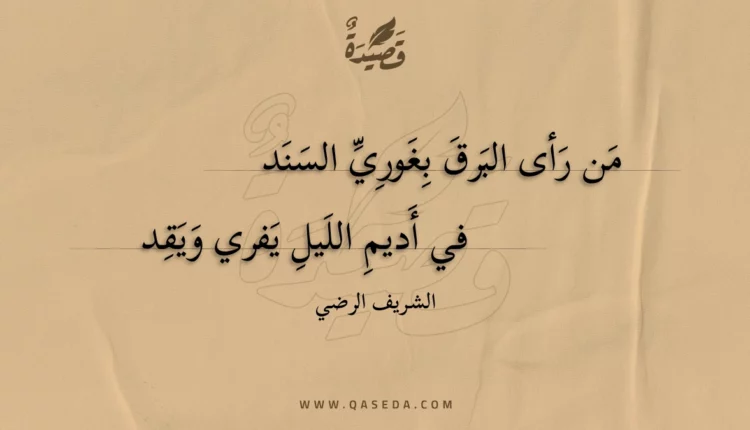 قَصِيدَةٌ
مَن رَأى البَرقَ بِغَورِيِّ السَنَد
في أَديمِ اللَيلِ يَفري وَيَقِد
الشريف الرضي
WWW.QASEDA.COM